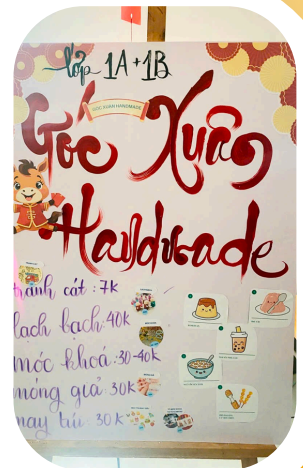 lớp 1A+1B
GÓC XUÂN HANDMADE
Góc Xuân
Handmade
tranh cát : 7k
lach bạch: 40k
móc khoá: 30-40k
móng giả 30k
may túi: 30k